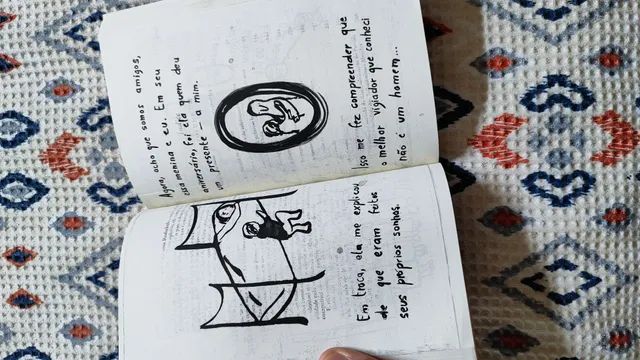 Em troca, ela me explicou
de que eram feitos
seus próprios sonhos.
Agora, acho que somos amigos,
essa menina e eu. Em seu
aniversário, foi ela quem deu
um presente – a mim.
Isso me fez compreender que
o melhor vigiador que conheci
não é um homem...